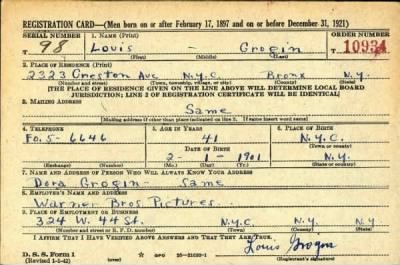 REGISTRATION CARD—(Men born on or after February 17, 1897 and on or before December 31, 1921)
SERIAL NUMBER 1. NAME (Print) ORDER NUMBER
T 98 Louis - Grogin 10934
(First) (Middle) (Last)
2. PLACE OF RESIDENCE (Print)
2323 Creston Ave N.Y.C. Bronx N.Y.
(Number and street) (Town, township, village, or city) (County) (State)
[THE PLACE OF RESIDENCE GIVEN ON THE LINE ABOVE WILL DETERMINE LOCAL BOARD
JURISDICTION; LINE 2 OF REGISTRATION CERTIFICATE WILL BE IDENTICAL]
3. MAILING ADDRESS
Same
[Mailing address if other than place indicated on line 2. If same insert word same]
4. TELEPHONE 5. AGE IN YEARS 6. PLACE OF BIRTH
Fo. 5-6646 41 N.Y.C.
DATE OF BIRTH (Town or county)
2-1-1901 N.Y.
(Exchange) (Number) (Mo.) (Day) (Yr.) (State or country)
7. NAME AND ADDRESS OF PERSON WHO WILL ALWAYS KNOW YOUR ADDRESS
Dora Grogin - Same
8. EMPLOYER'S NAME AND ADDRESS
Warner Bros. Pictures
9. PLACE OF EMPLOYMENT OR BUSINESS
324 W. 44 St. N.Y.C. N.Y. N.Y.
(Number and street or R. F. D. number) (Town) (County) (State)
I AFFIRM THAT I HAVE VERIFIED ABOVE ANSWERS AND THAT THEY ARE TRUE.
D. S. S. Form 1 GPO 16—21630-1 Louis Grogin
(Revised 1-1-42) (Registrant's signature)